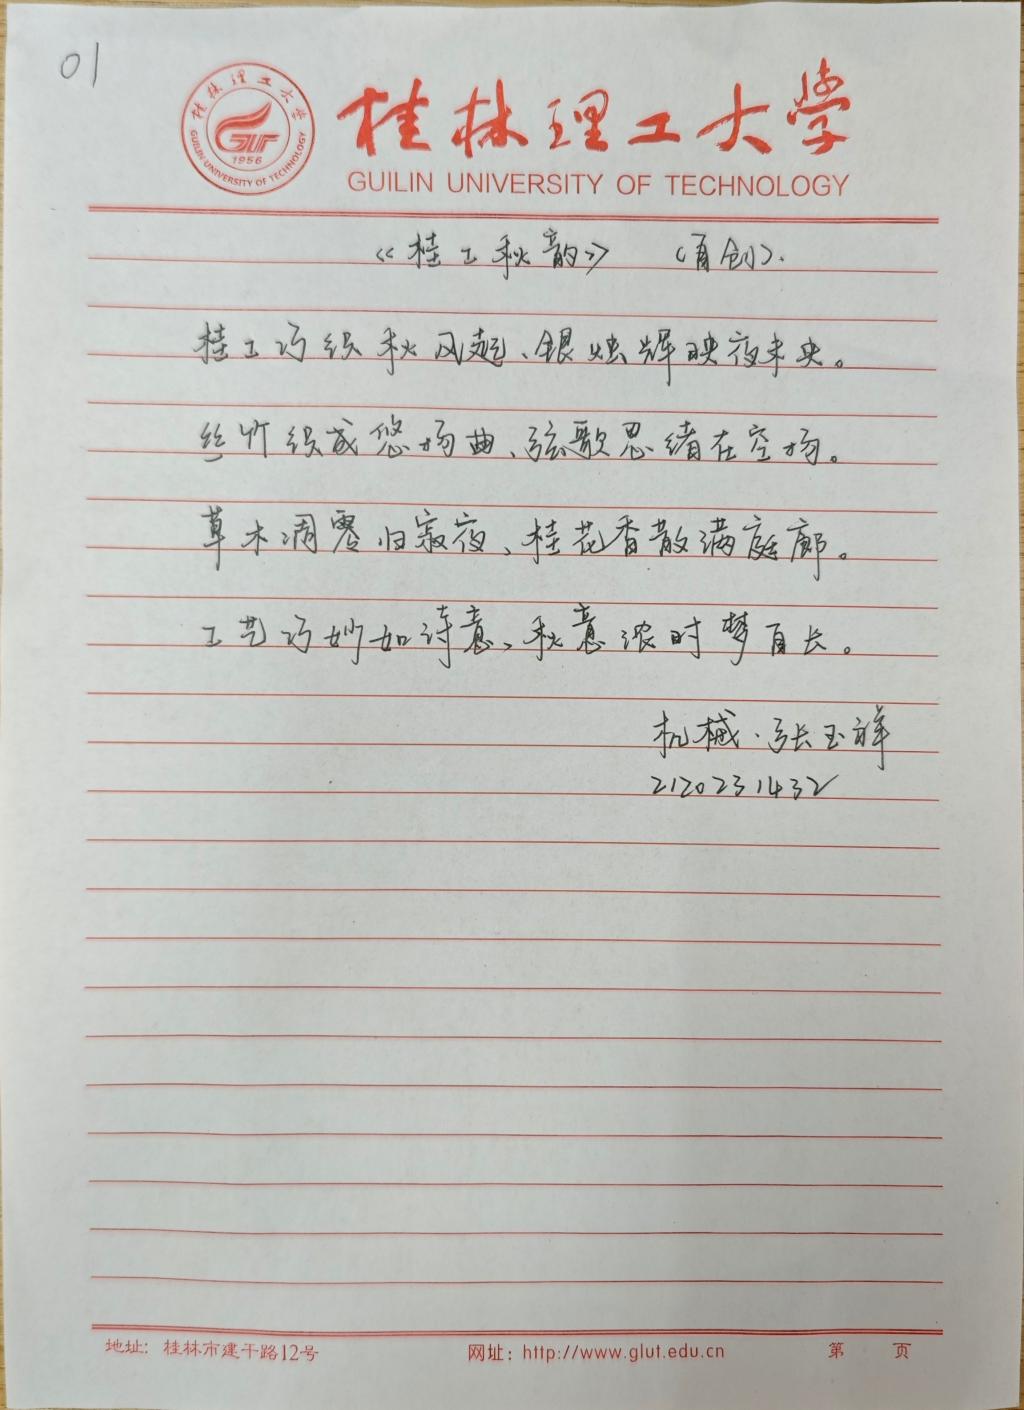 01
桂林理工大学
GUILIN UNIVERSITY OF TECHNOLOGY
桂林理工大学
GUT
1956
GUILIN UNIVERSITY OF TECHNOLOGY
《桂工秋韵》 (自创).
桂工巧织秋风起、银烛辉映夜未央。
丝竹织成悠扬曲、弦歌思绪在空扬。
草木凋零归寂夜、桂花香散满庭廊。
工艺巧妙如诗意、秋意浓时梦自长。
机械·张玉祥
2120231432
地址：桂林市建干路12号 网址：http://www.glut.edu.cn 第 页